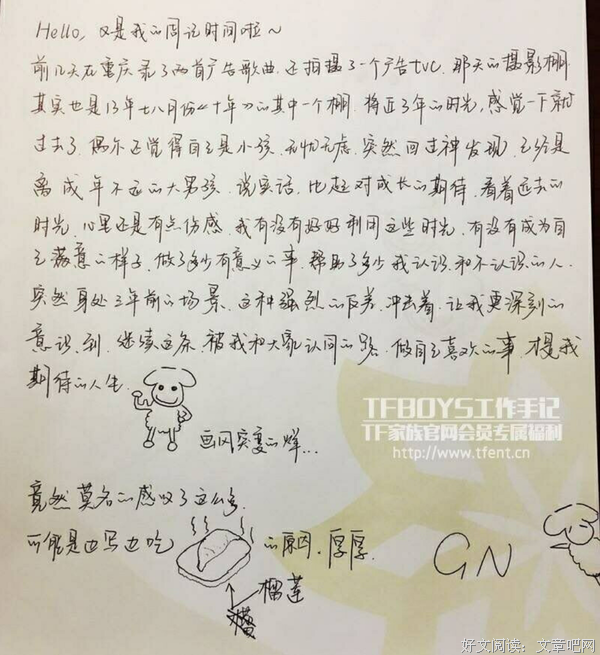 Hello, 又是我的周记时间啦~
前几天在重庆录了两首广告歌曲.还拍摄了一个广告tvc. 那天的摄影棚
其实也是13年七八月份《十年》的其中一个棚. 将近3年的时光,感觉一下就
过去了. 偶尔还觉得自己是小孩. 无忧无虑. 突然回过神发现. 已经是
离成年不远的大男孩. 说实话. 比起对成长的期待. 看着远去的
时光. 心里还是有点伤感. 我有没有好好利用这些时光. 有没有成为自
己满意的样子. 做了多少有意义的事. 帮助了多少我认识和不认识的人.
突然身处三年前的场景. 这种强烈的反差. 冲击着. 让我更深刻的
意识到. 继续这条. 被我和大家认同的路. 做自己喜欢的事 才是我
期待的人生.
画风突变的烊...
TFBOYS工作手记
TF家族官网会员专属福利
http://www.tfent.cn
竟然莫名的感叹了这么多.
可能是边写边吃 的原因. 厚厚.
榴莲
GN
好文阅读:文章吧网